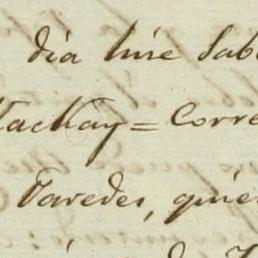 dia hise Sab
MacKay = Corre
Paredes, quie